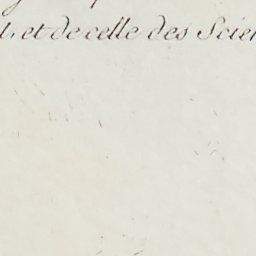 et de celle des Scien